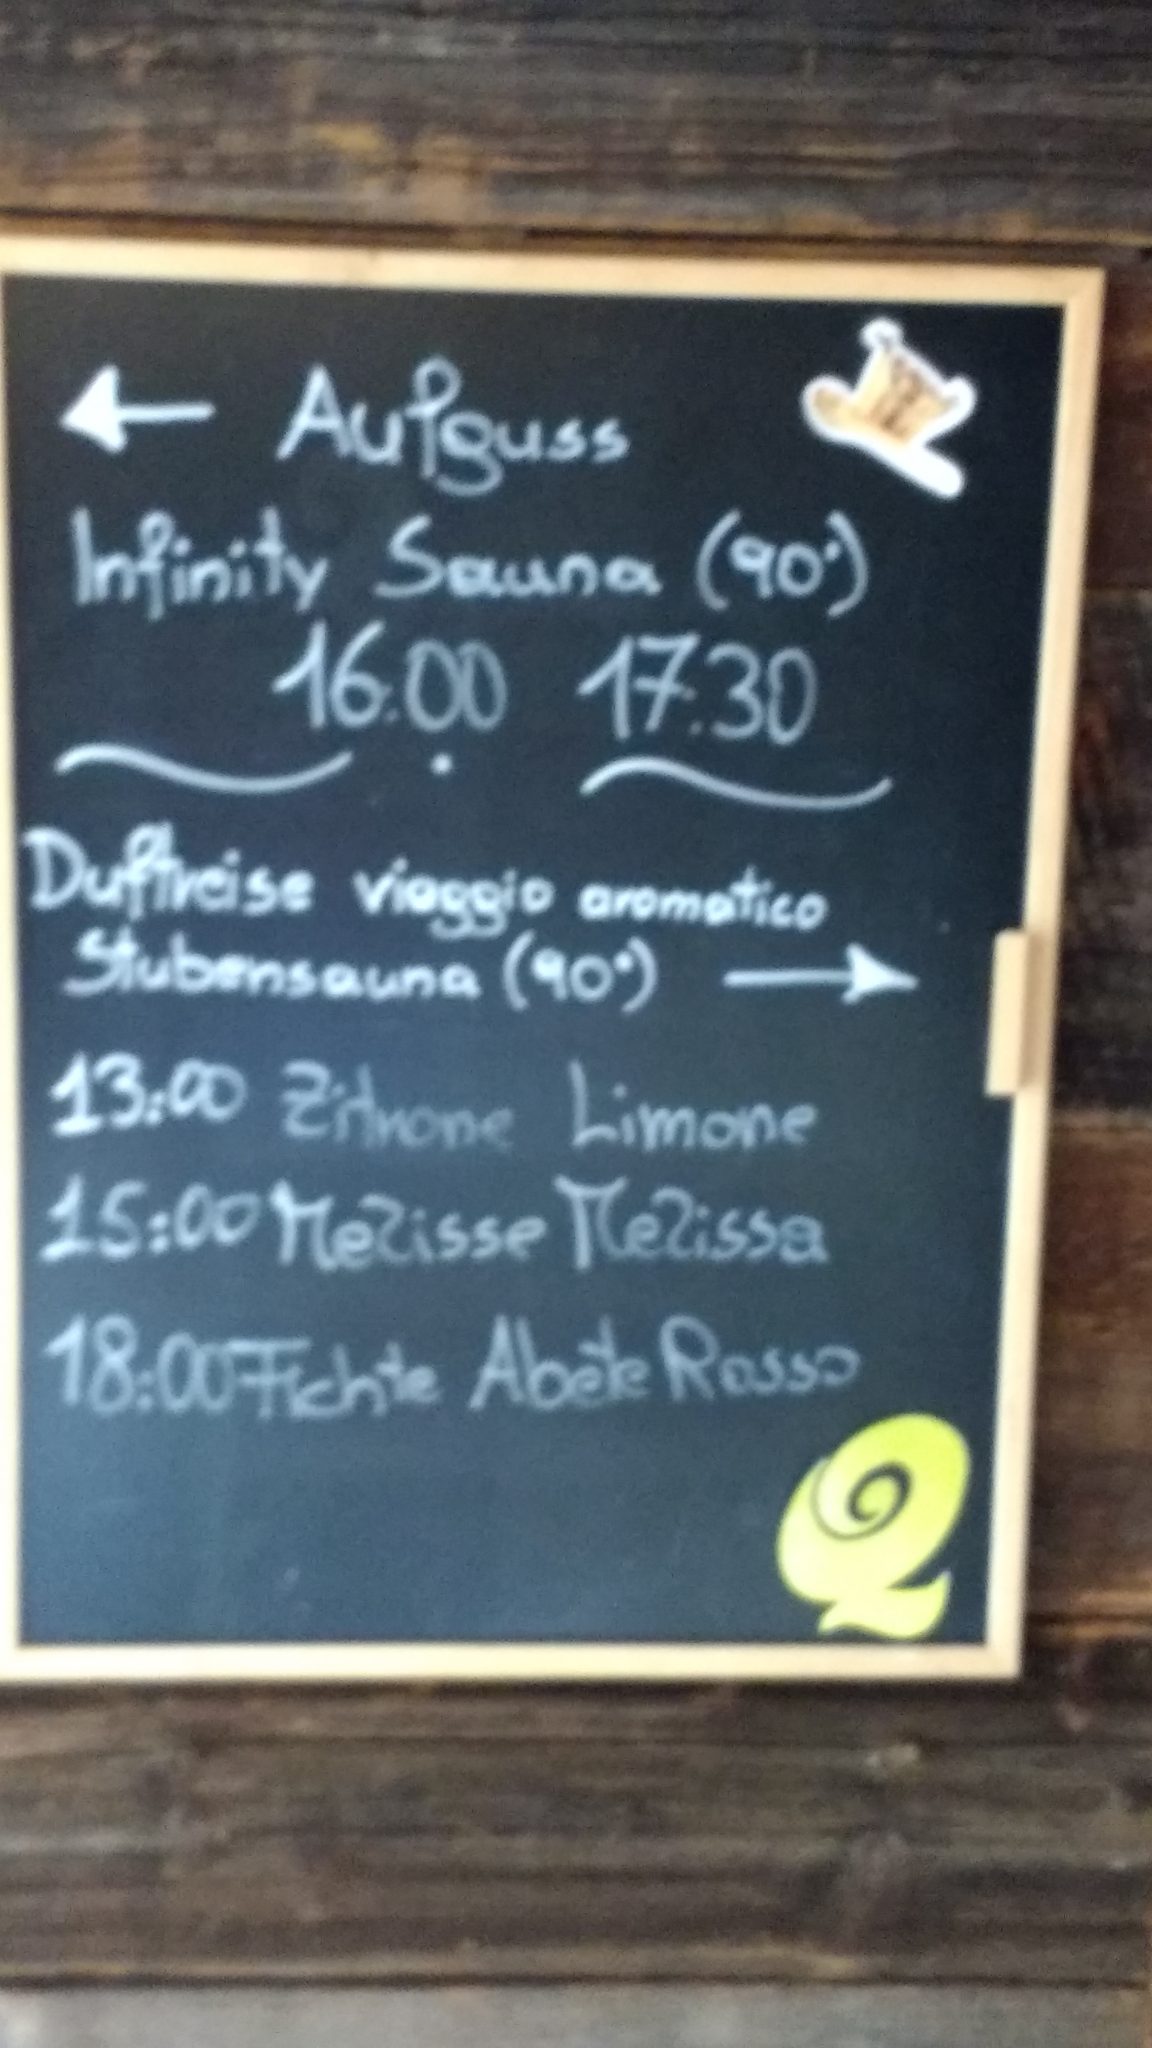 ← Aufguss
Infinity Sauna (90°)
16:00 17:30
Duftreise viaggio aromatico
Stubensauna (90°) →
13:00 Zitrone Limone
15:00 Melisse Melissa
18:00 Fichte Abete Rosso